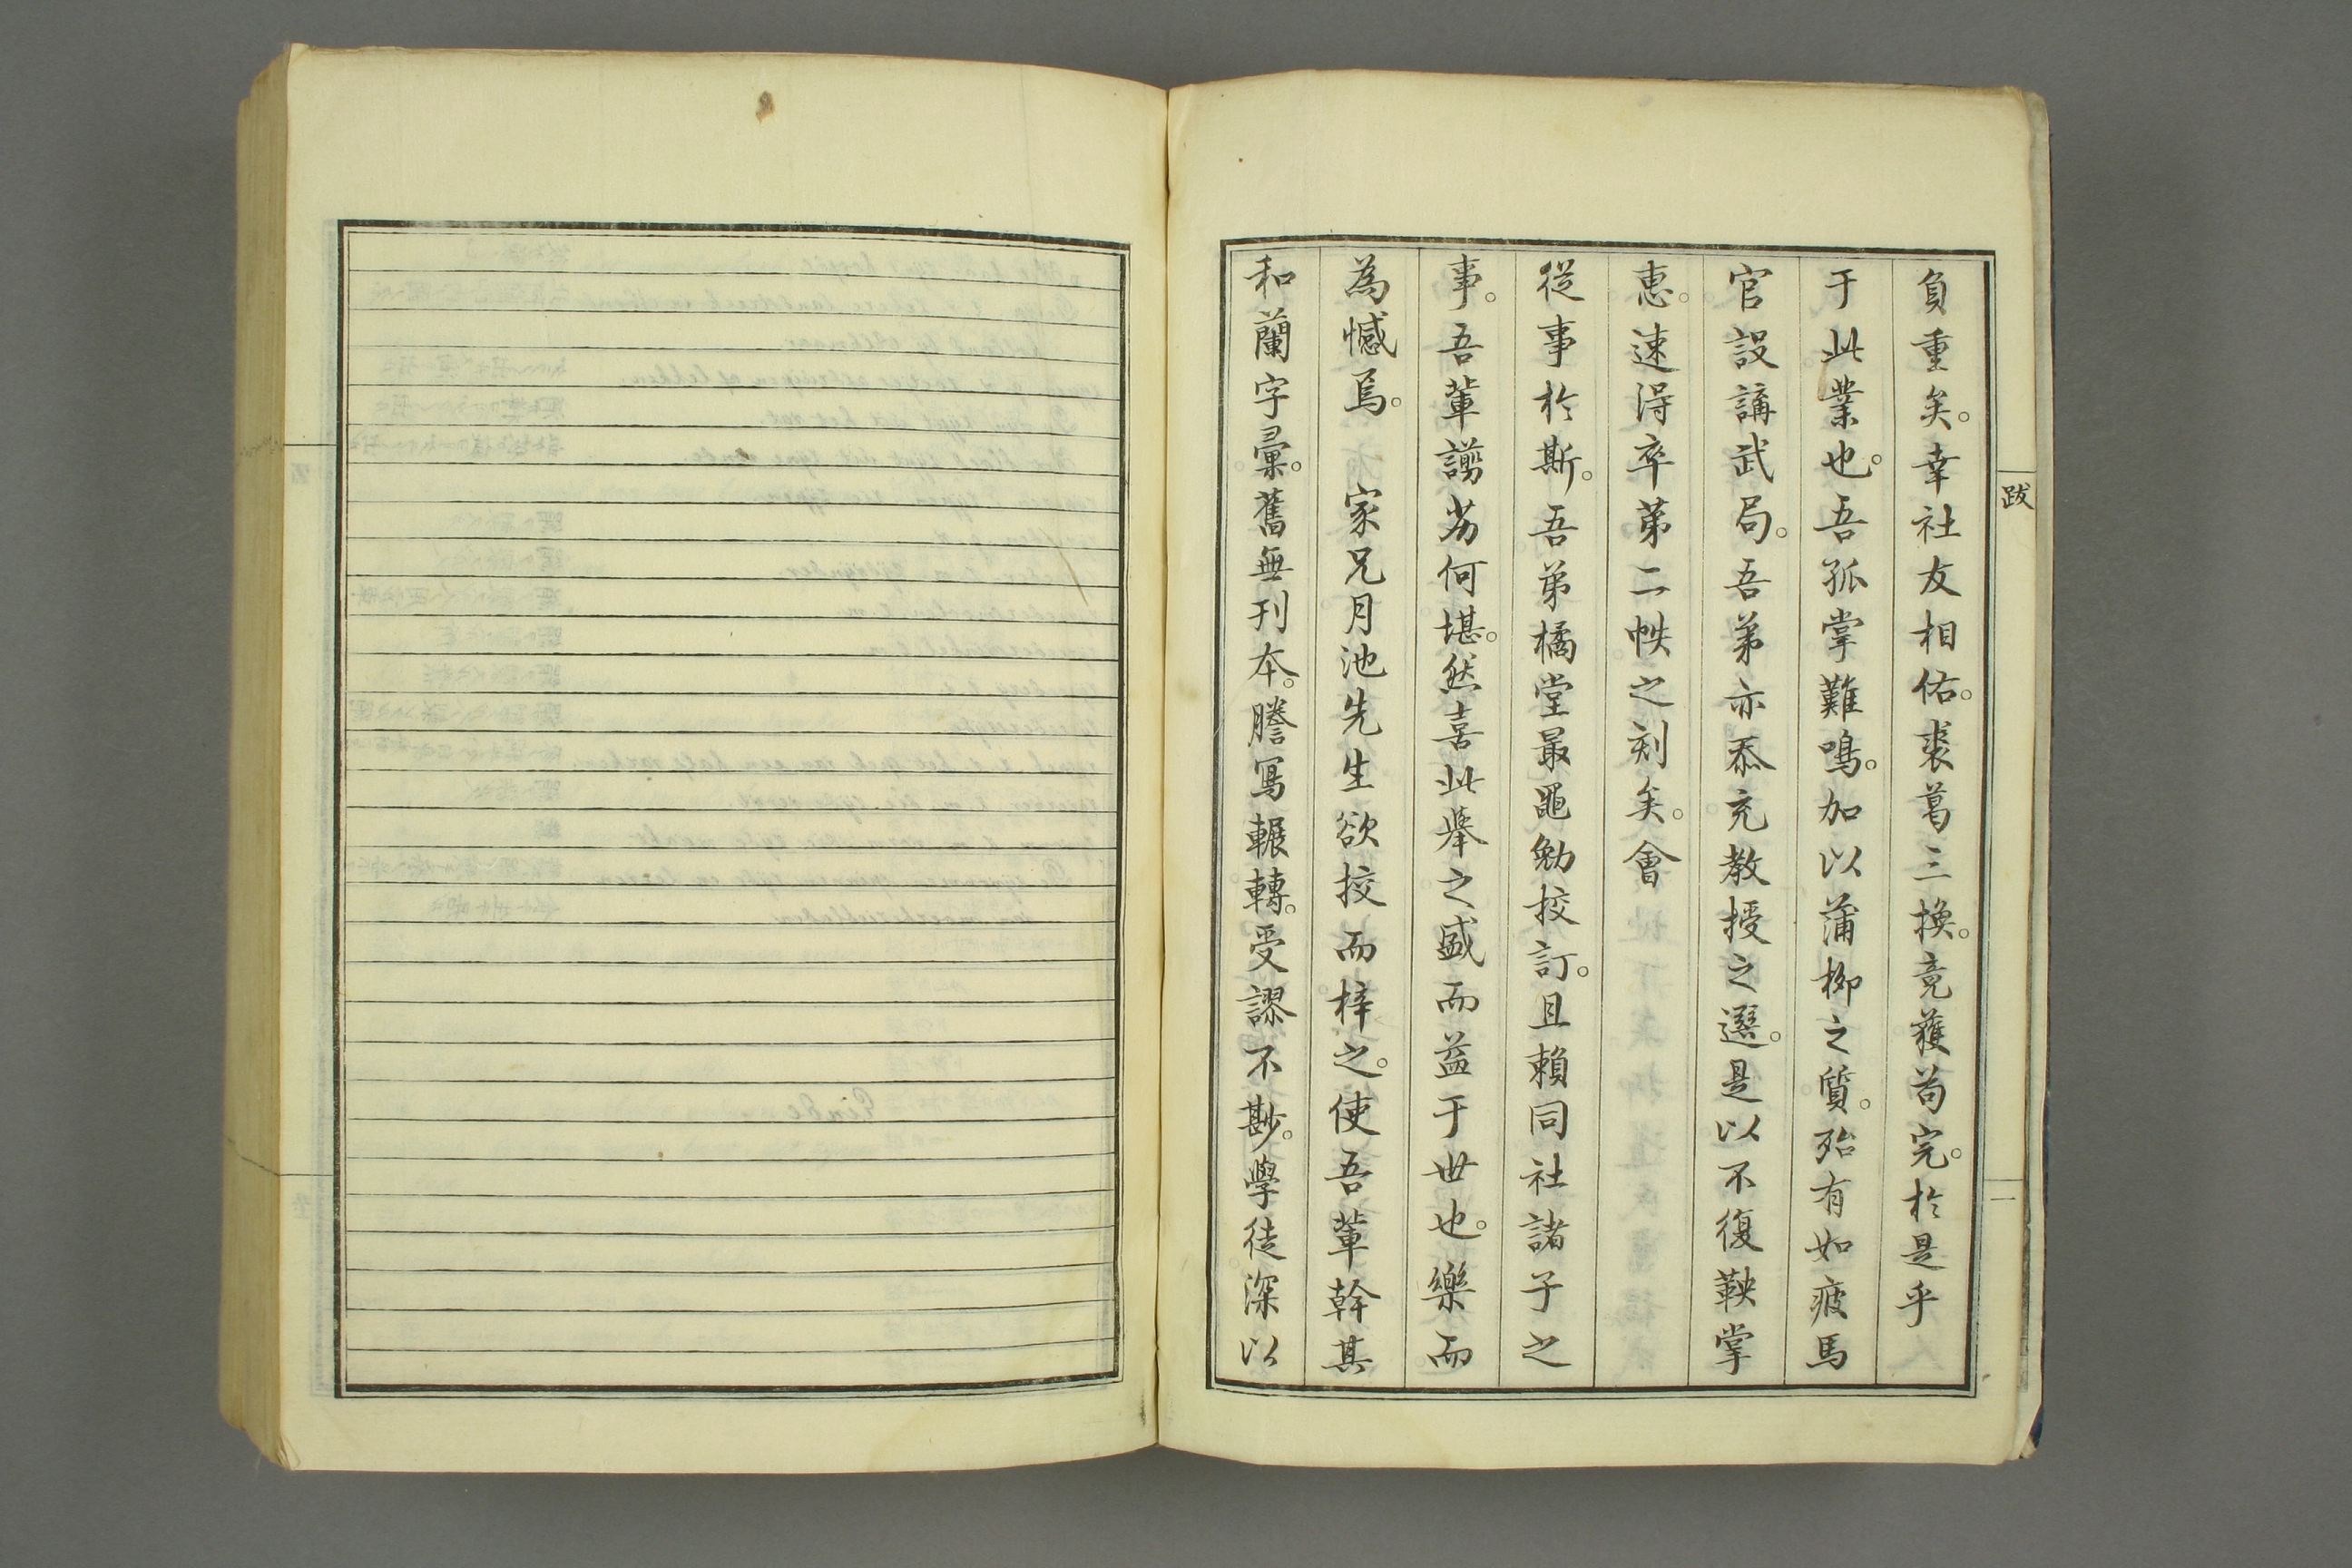 和蘭字彙。舊無刊本。謄寫輾轉。受謬不尠。學徒深以
為憾焉。家兄月池先生欲挍而梓之。使吾輩幹其
事。吾輩謭劣何堪。然喜此舉之盛而益于世也。樂而
從事於斯。吾弟橘堂最黽勉挍訂。且賴同社諸子之
惠。速得卒第二帙之刻矣。會
官設講武局。吾弟亦忝充教授之選。是以不復鞅掌
于此業也。吾孤掌難鳴。加以蒲柳之質。殆有如疲馬
負重矣。幸社友相佑。裘葛三換。竟獲苟完。於是乎
跋
一